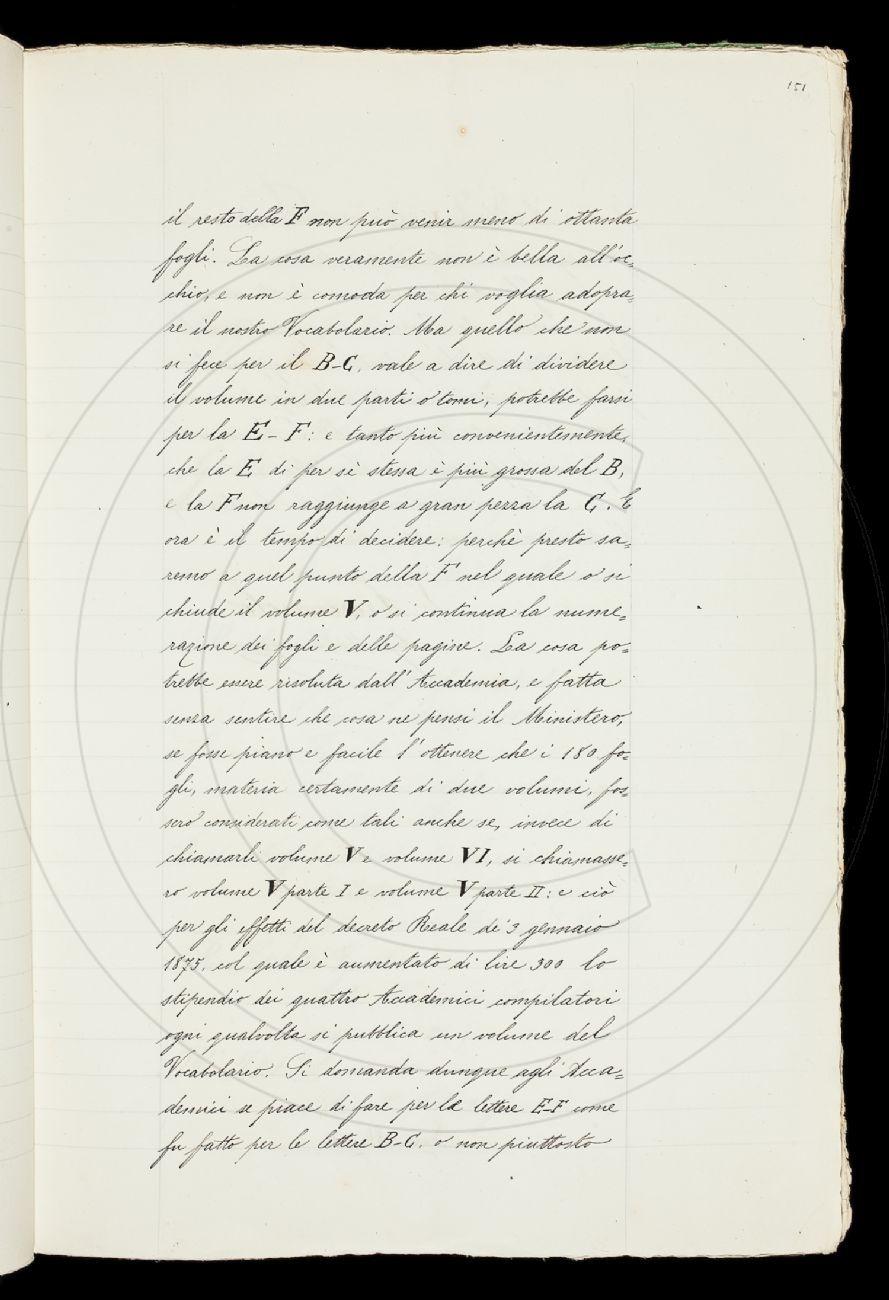 151
il resto della F non può venir meno di ottanta
fogli. La cosa veramente non è bella all'oc=
chio, e non è comoda per chi voglia adopra=
re il nostro Vocabolario. Ma quello che non
si fece per il B-C, vale a dire di dividere
il volume in due parti o tomi, potrebbe farsi
per la E-F: e tanto più convenientemente,
che la E di per sè stessa è più grossa del B,
e la F non raggiunge a gran pezza la C. E
ora è il tempo di decidere: perchè presto sa=
remo a quel punto della F nel quale o si
chiude il volume V, o si continua la nume=
razione dei fogli e delle pagine. La cosa po=
trebbe essere risoluta dall'Accademia, e fatta
senza sentire che cosa ne pensi il Ministero,
se fosse piano e facile l'ottenere che i 180 fo=
gli, materia certamente di due volumi, fos=
sero considerati come tali anche se, invece di
chiamarli volume V e volume VI, si chiamasse=
ro volume V parte I e volume V parte II: e ciò
per gli effetti del decreto Reale de' 3 gennaio
1875, col quale è aumentato di lire 300 lo
stipendio dei quattro Accademici compilatori
ogni qualvolta si pubblica un volume del
Vocabolario. Si domanda dunque agli Acca=
demici se piace di fare per le lettere E-F come
fu fatto per le lettere B-C, o non piuttosto